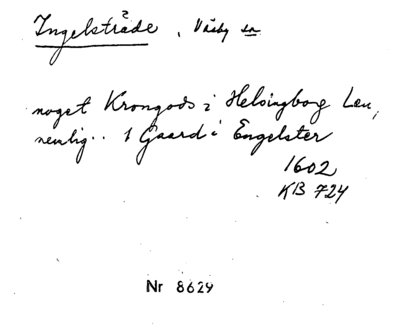 Ingelsträde, Väsby sn
noget Krongods i Helsingborg Len,
nemlig.. 1 Gaard i Engelster
1602
KB 724
Nr 8629